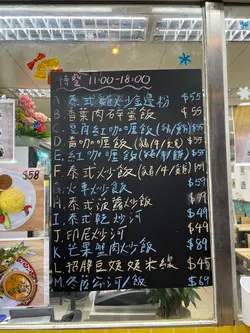 特堂 11:00-18:00
A 泰式雞炒金邊粉 $55
B 香葉肉碎蛋飯 $55
C 皇冑紅咖喱飯(豬/雞) $5
D 青咖喱飯(豬/牛/雞) $5
E 紅咖喱飯(豬/牛/雞)
F 泰式炒飯(豬/牛/雞) $5
G 火車炒飯 $59
H 泰式菠蘿炒飯 $59
I 泰式乾炒河 $49
J 印尼炒河 $49
K 芒果蟹肉炒飯 $89
L 招牌豆 米線 $48
M 冬陰公河/飯 $69
$58